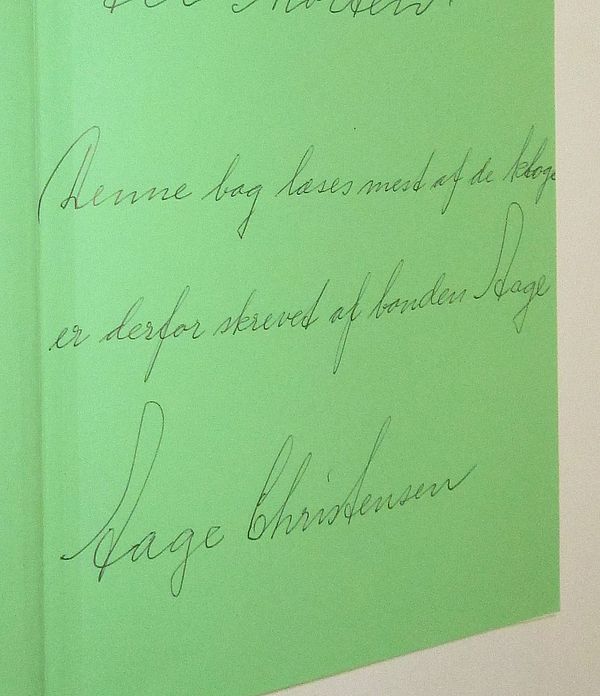 Til Morten.
Denne bog læses mest af de kloge
er derfor skrevet af bonden Aage
Aage Christensen